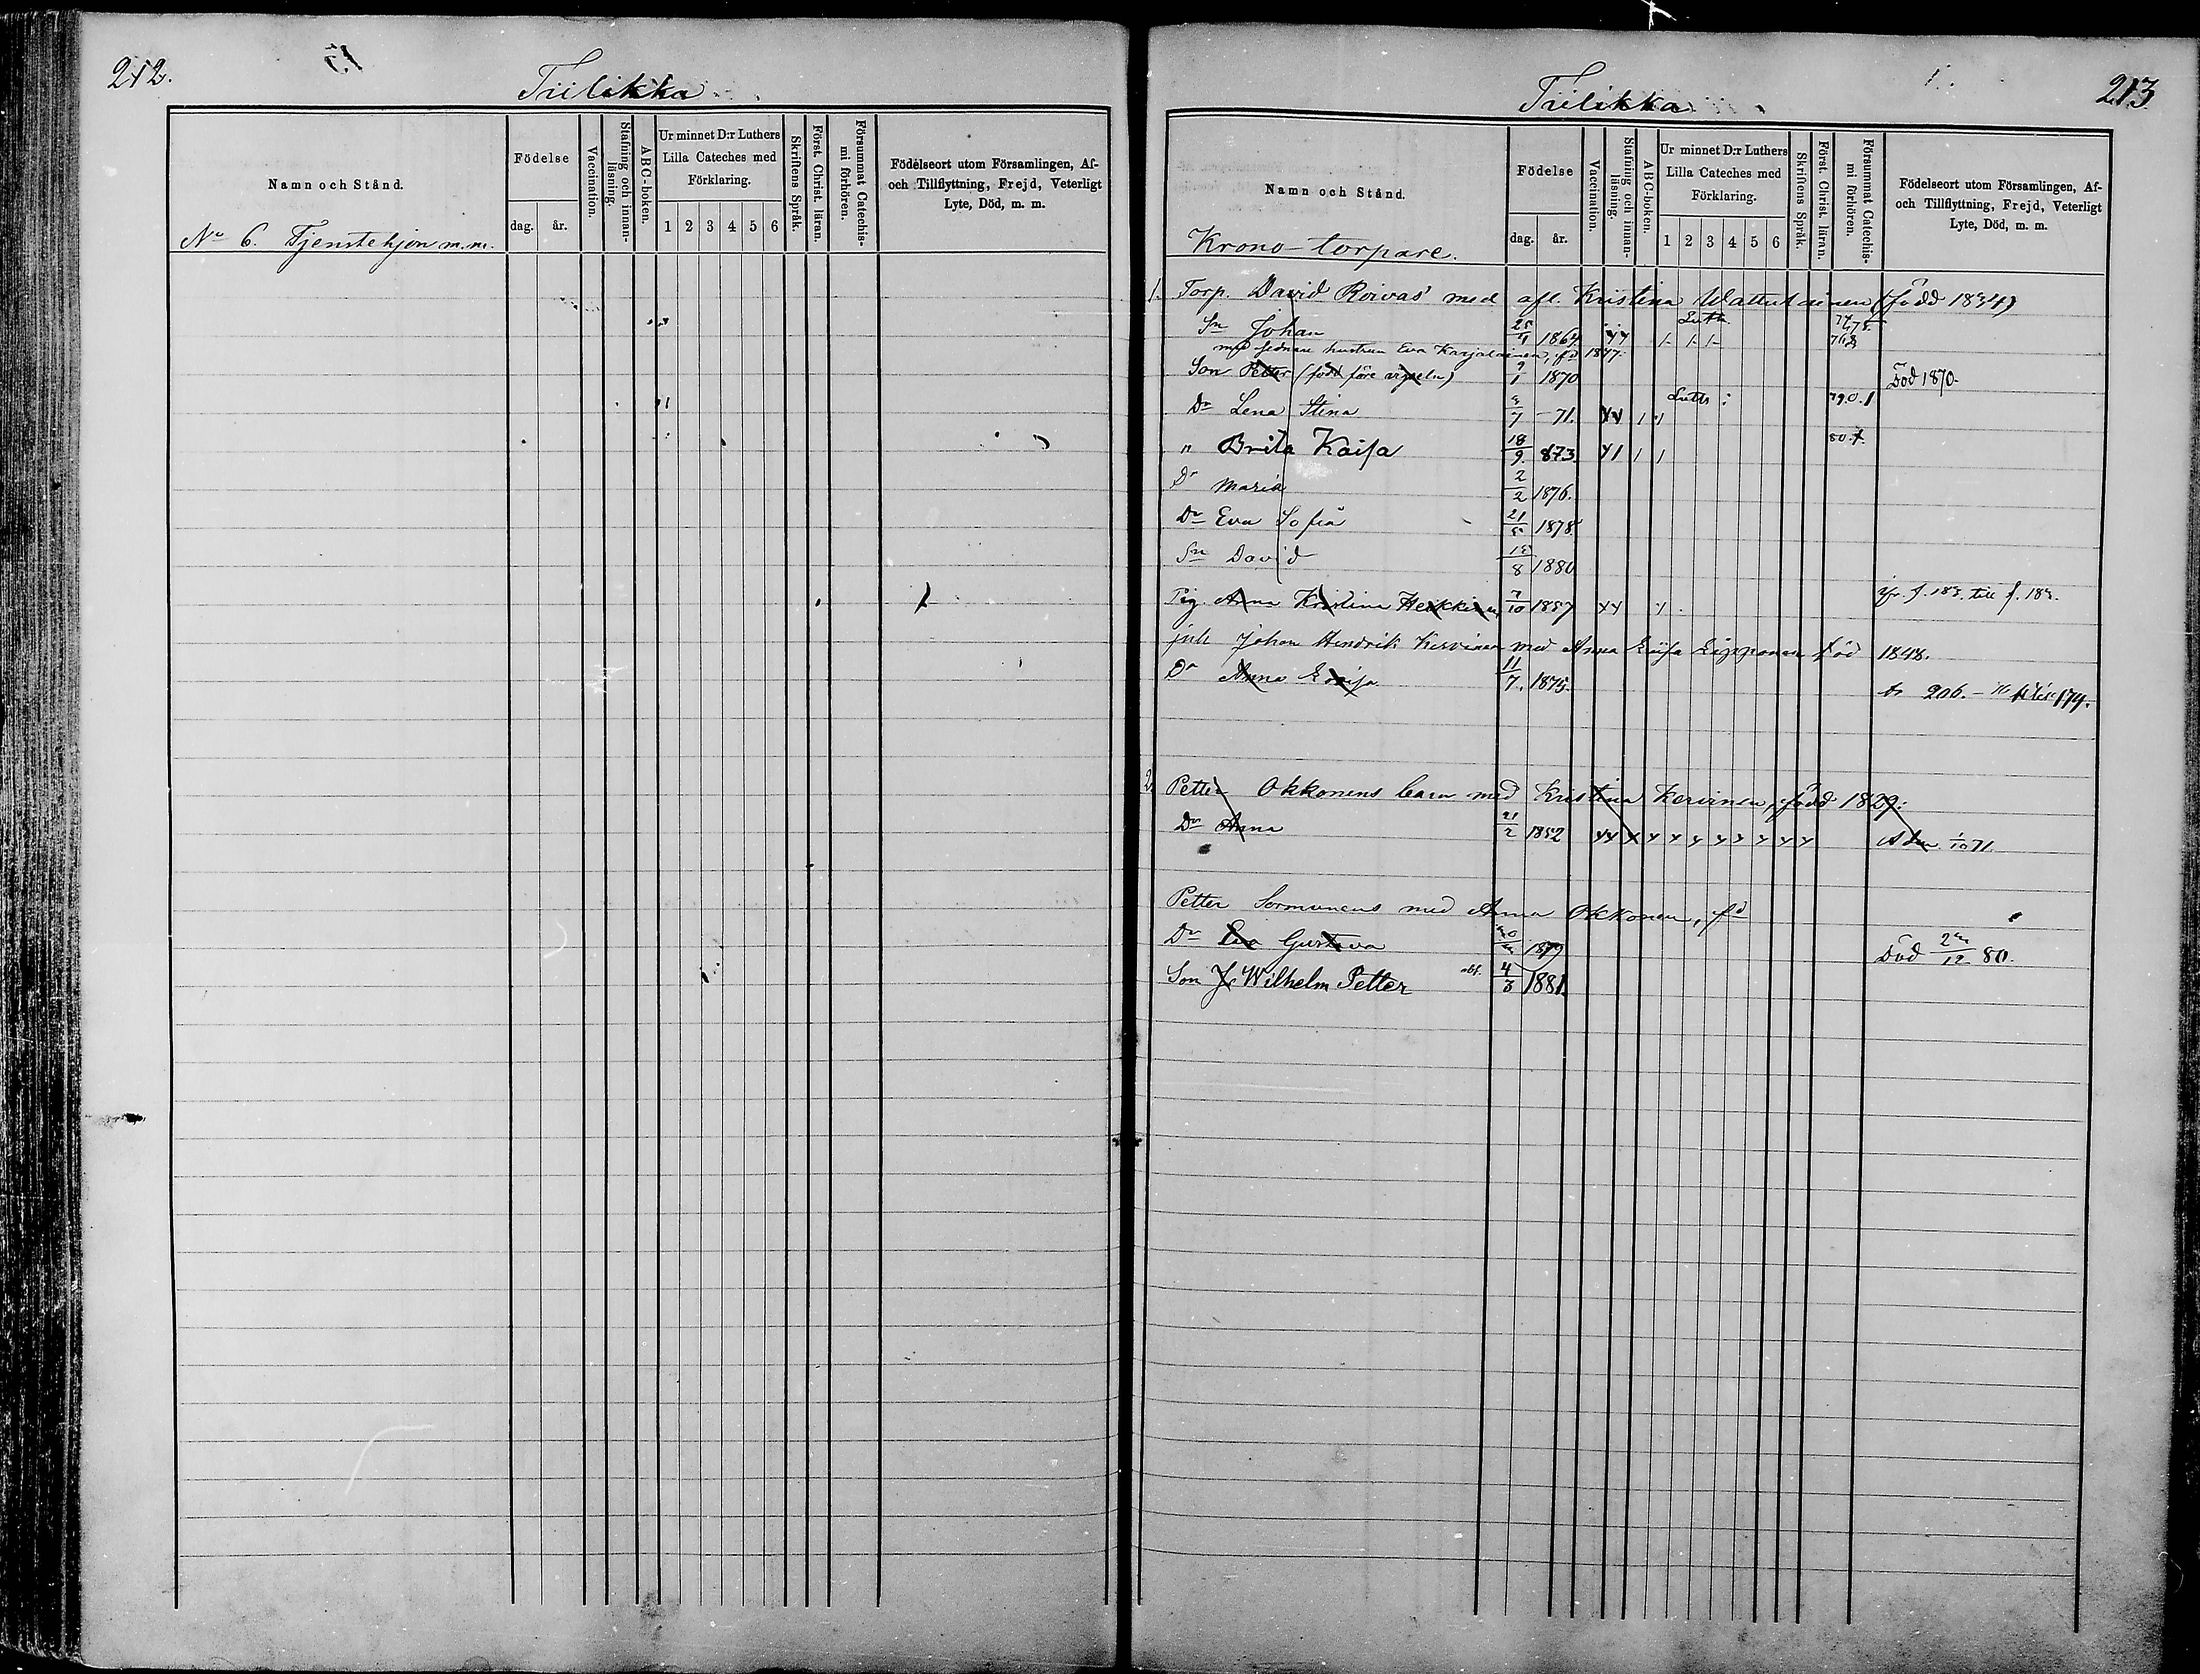 212.
Tiilikka
Namn och Stånd.
Födelse
dag.
år.
Vaccination.
Stafning och innan-läsning.
ABC-boken.
Ur minnet D:r Luthers Lilla Cateches med Förklaring.
1 2 3 4 5 6
Skriftens Språk.
Först. Christ. läran.
Försummat Catechis-mi förhören.
Födelseort utom Församlingen, Af- och Tillflyttning, Frejd, Veterligt Lyte, Död, m. m.
No 6. Tjenstehjon m.m.
213
Tiilikka
Namn och Stånd.
Födelse
dag.
år.
Vaccination.
Stafning och innan-läsning.
ABC-boken.
Ur minnet D:r Luthers Lilla Cateches med Förklaring.
1 2 3 4 5 6
Skriftens Språk.
Först. Christ. läran.
Försummat Catechis-mi förhören.
Födelseort utom Församlingen, Af- och Tillflyttning, Frejd, Veterligt Lyte, Död, m. m.
Krono-torpare.
1. Torp. David Roivas' med afl. Kristina (född 1834)
Sn Johan 1864
med sednare hustrun Eva Karjalainen, fd 1847.
Son Petter (född före vigseln) 1870 Död 1870.
Dr Lena Stina 71. 79.0.1
" Brita Kaisa 18/9 873. 80.
Dr Maria 2/2 1876.
Dr Eva Sofia 21/5 1878
Sn David 18/8 1880
Pig. Anna Kristina Heikkinen 7/10 1857 till f. 183.
inh Johan Hendrik Kervinen med Anna Lipponen född 1848.
Dr Anna Lovisa 11/7. 1875. 206. 174.
2. Petter Okkonens barn med Kristina Kervinen, född 1829.
Dr Anna 21/2 1852 1/10 71.
Petter Sormunens med Anna Okkonen, fd
Dr Eva Gustava 1879 Död 2/12 80.
Son Wilhelm Petter 4/3 1881.